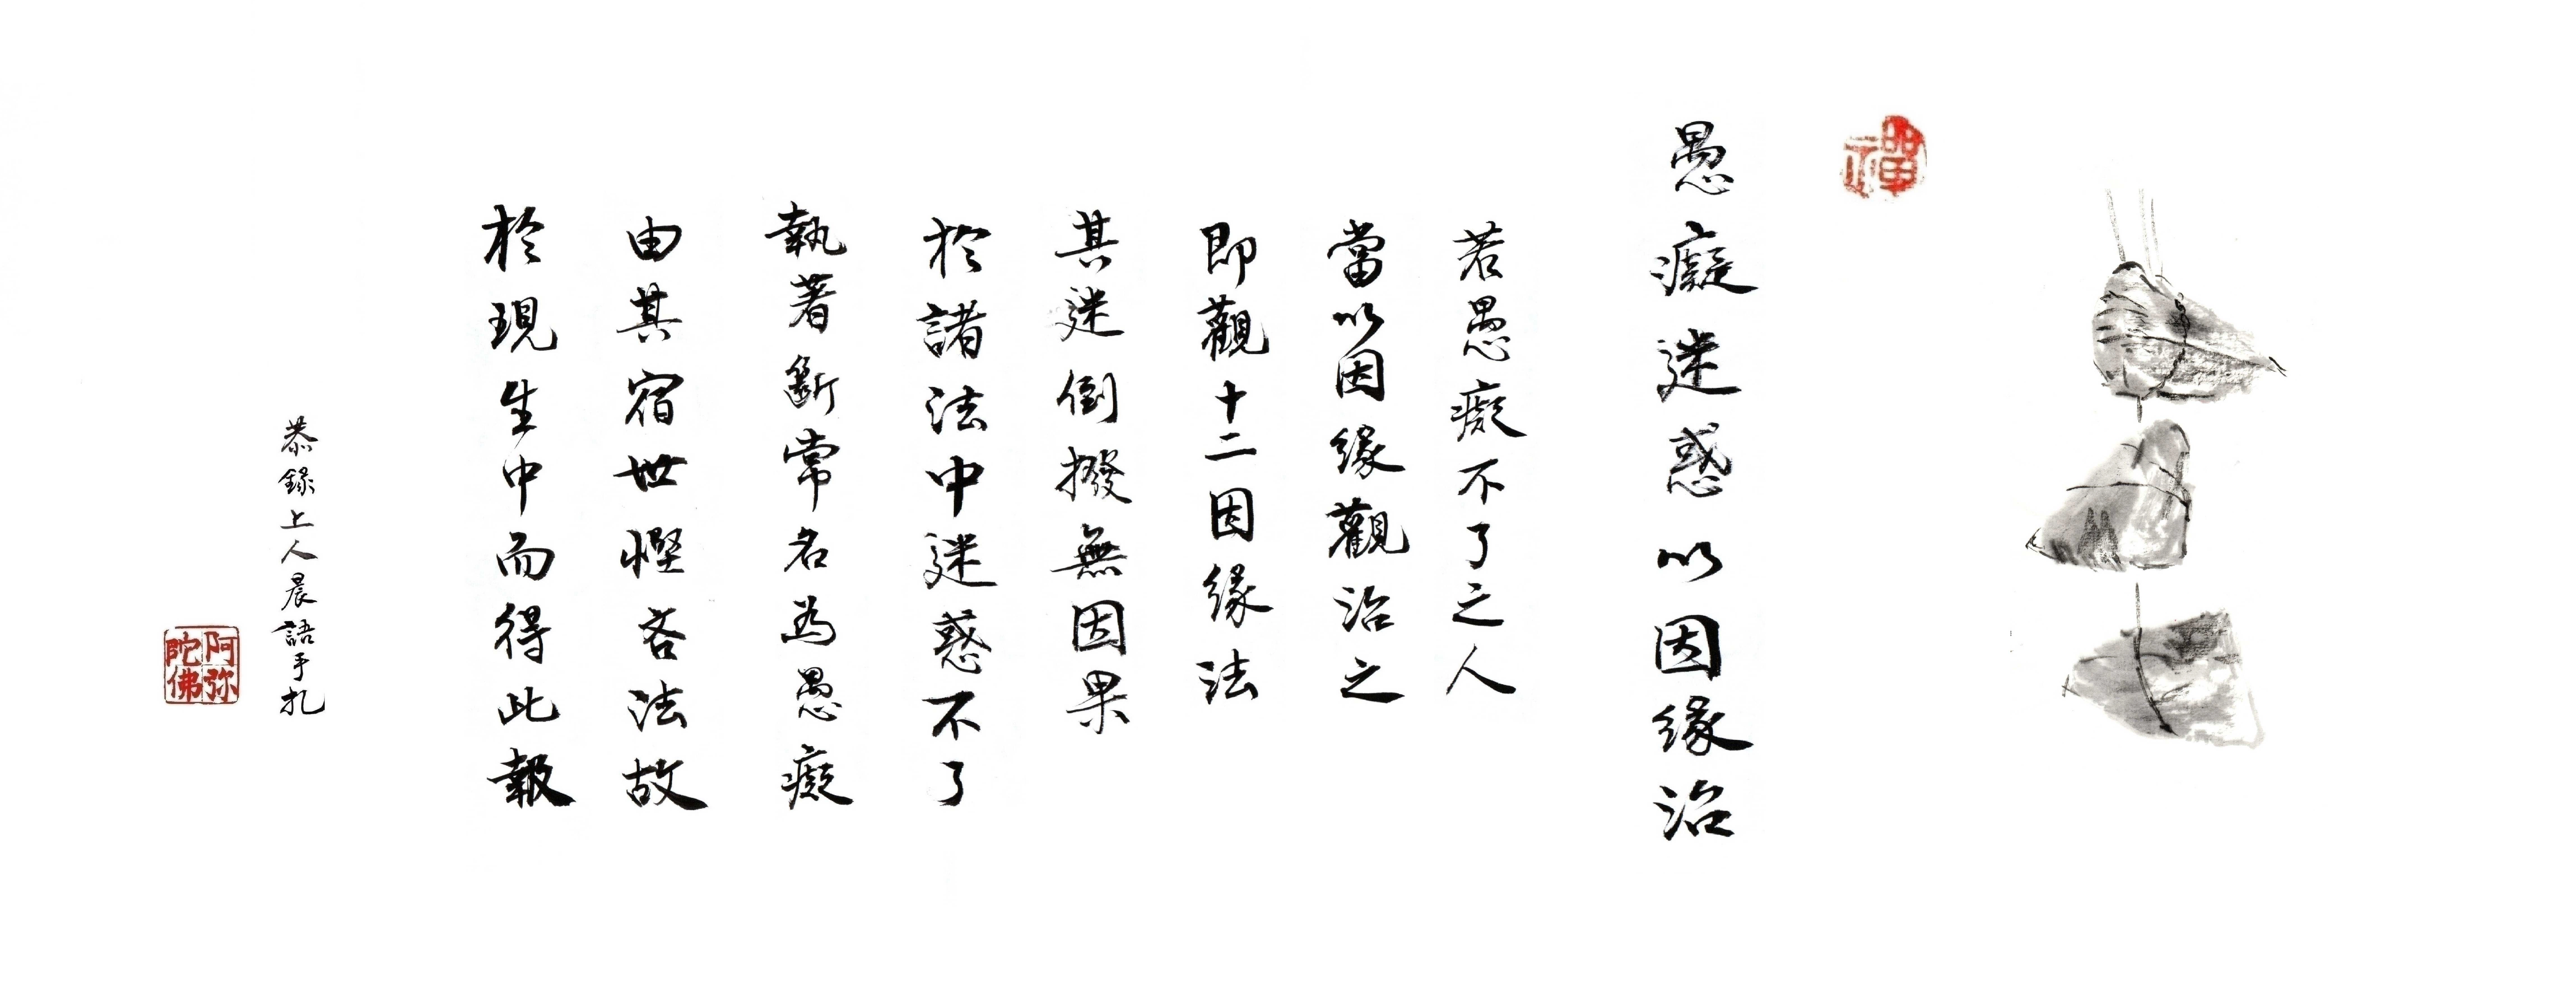 禪
愚癡迷惑以因緣治
若愚癡不了之人
當以因緣觀治之
即觀十二因緣法
其迷倒撥無因果
於諸法中迷惑不了
執著斷常名為愚癡
由其宿世慳吝法故
於現生中而得此報
恭錄上人晨語手札
阿弥
陀佛